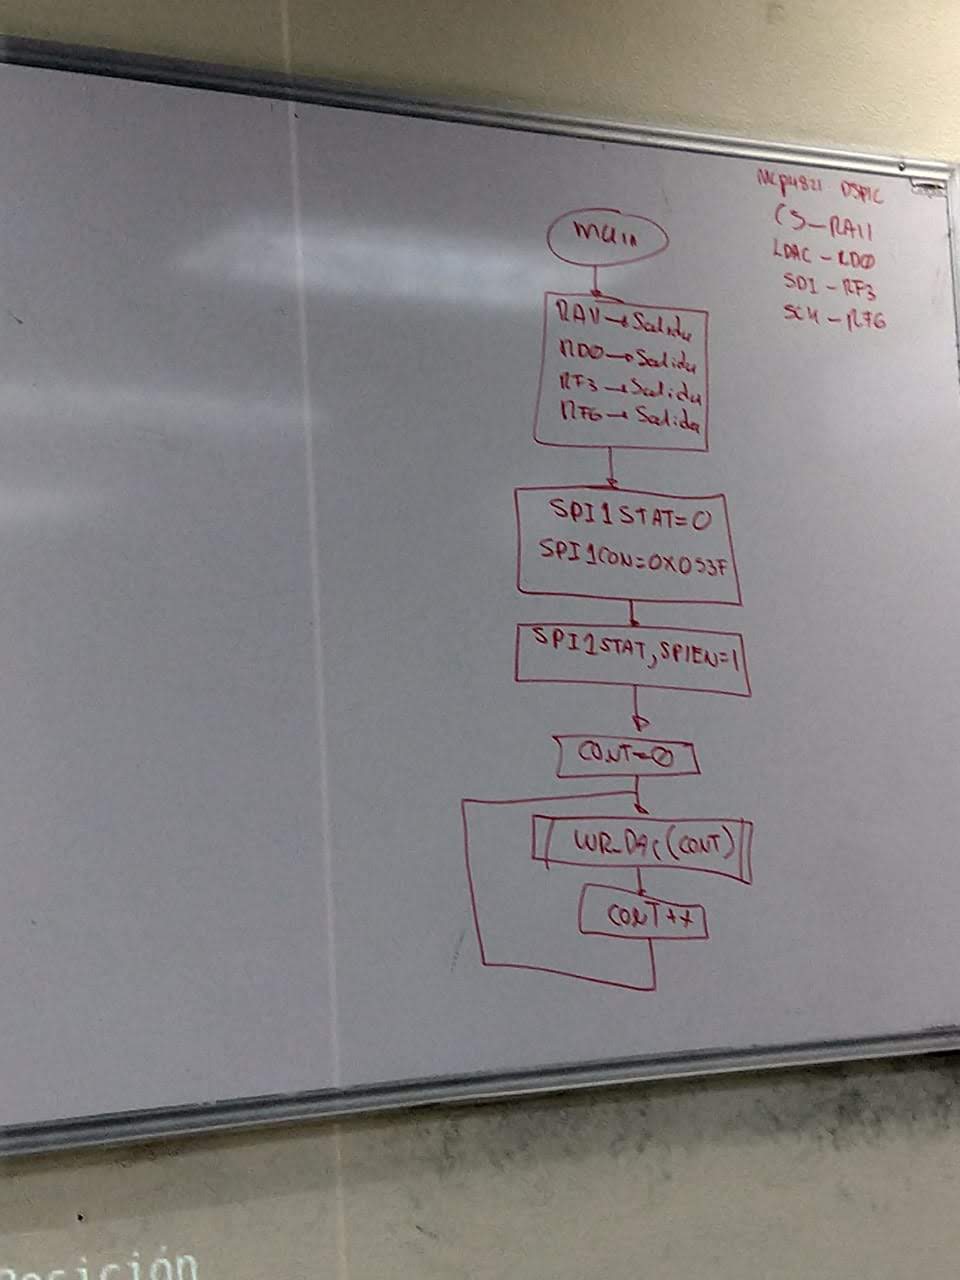 MCP4821 DSPIC
CS-RA11
LDAC-RD0
SDI-RF3
SCK-RF6
main
RA11→Salida
RD0→Salida
RF3→Salida
RF6→Salida
SPI1STAT=0
SPI1CON=0X053F
SPI1STAT,SPIEN=1
CONT=0
WR_DAC(CONT)
CONT++
posición